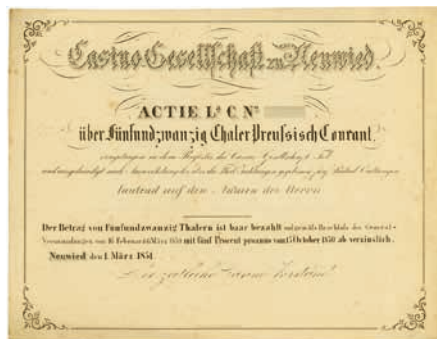 Casino-Gesellschaft zu Neuwied.
ACTIE L.ª C Nº
über Fünfundzwanzig Thaler Preussisch Courant,
eingetragen in dem Register der Casino Gesellschaft
und ausgehändigt nach
lautend auf den Namen des Herrn
Der Betrag von Fünfundzwanzig Thalern ist baar bezahlt und gemäss Beschluss der General-
Versammlungen vom 16 Februar 1851 mit fünf Procent pro anno vom 15 October 1850 ab verzinslich.
Neuwied den 1. März 1851.
Der zeitliche Casino Vorstand